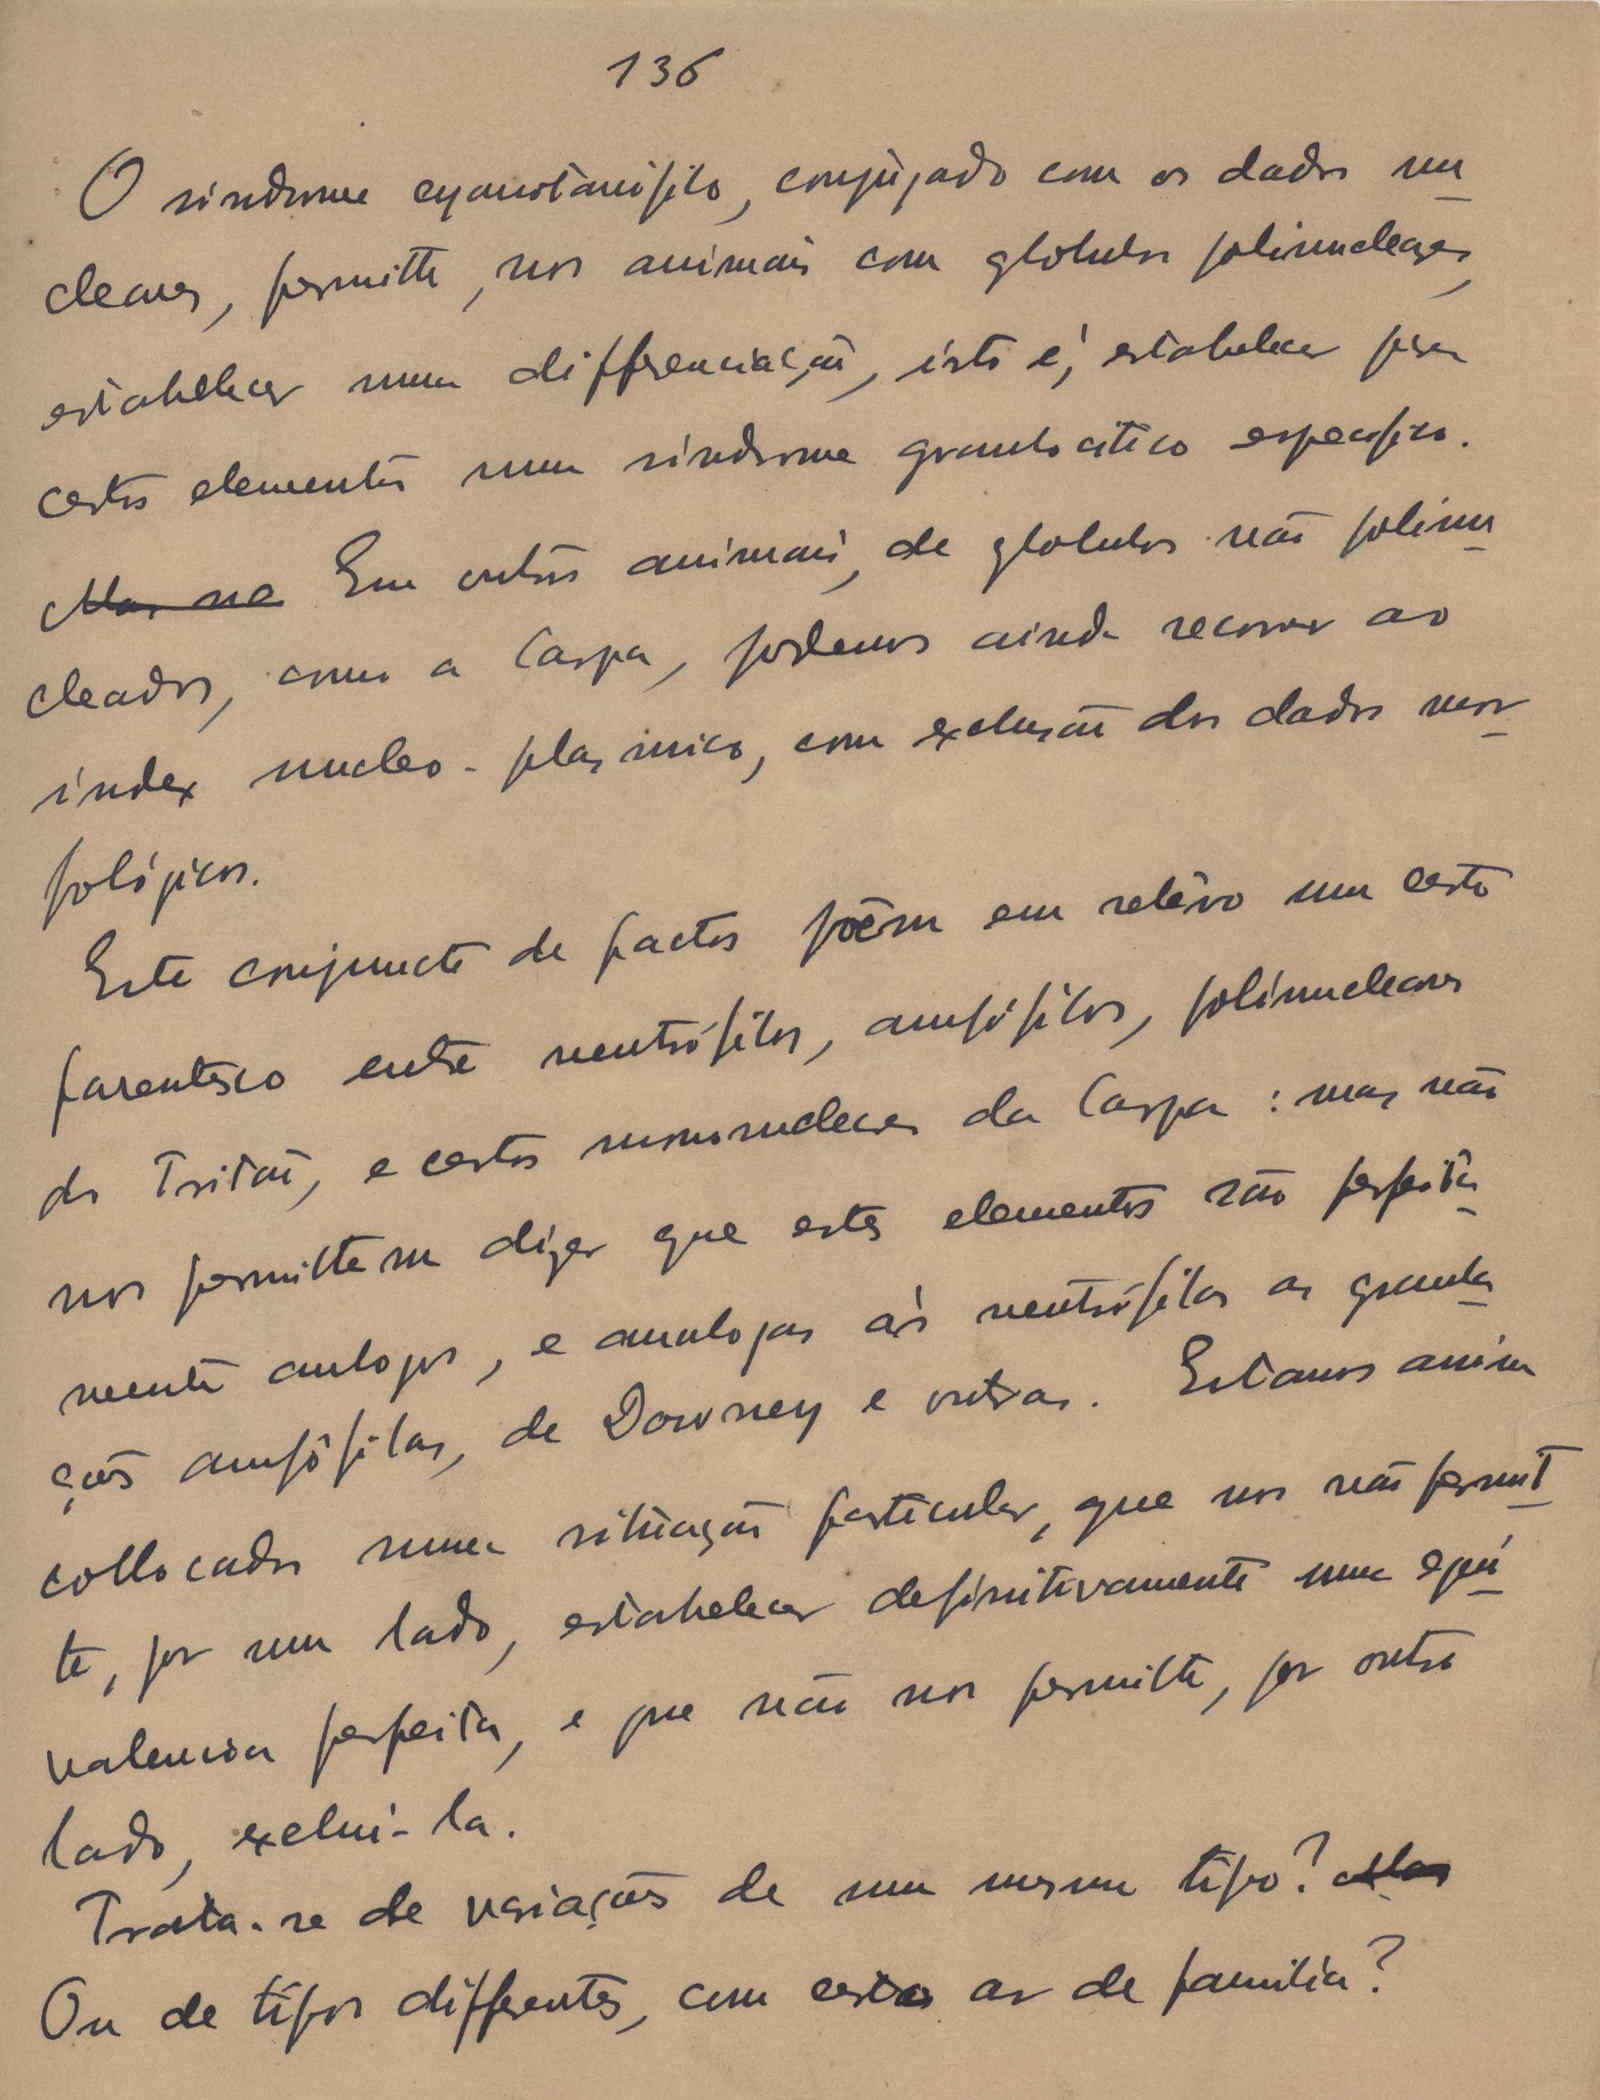 136
O sindrome cyanotanófilo, conjugado com os dados nu
cleares, permitte, nos animais com globulos polinucleares,
estabelecer uma differenciação, isto é, estabelecer para
certos elementos um sindrome granulocitico especifico.
Mas na Em outros animais, de globulos não polinu
cleados, como a Carpa, podemos ainda recorrer ao
index nucleo-plasmico, com exclusão dos dados mor
fológicos.
Este conjuncto de factos põem em relêvo um certo
parentesco entre neutrófilos, amfófilos, polinucleares
do Tritão, e certos mononucleares da Carpa : mas não
nos permittem dizer que estes elementos são perfeita
mente analogos, e analogas às neutrófilas as granula
ções amfófilas, de Downey e outras. Estamos assim
collocados numa situação particular, que nos não permit
te, por um lado, estabelecer definitivamente uma equi
valencia perfeita, e que não nos permitte, por outro
lado, exclui-la.
Trata-se de variações de um mesmo tipo? Mas
Ou de tipos differentes, com certo ar de familia?